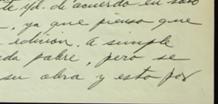 de acuerdo en todo
, ya que pienso que
edición. a simple
da pobre, pero se
su obra y esto por